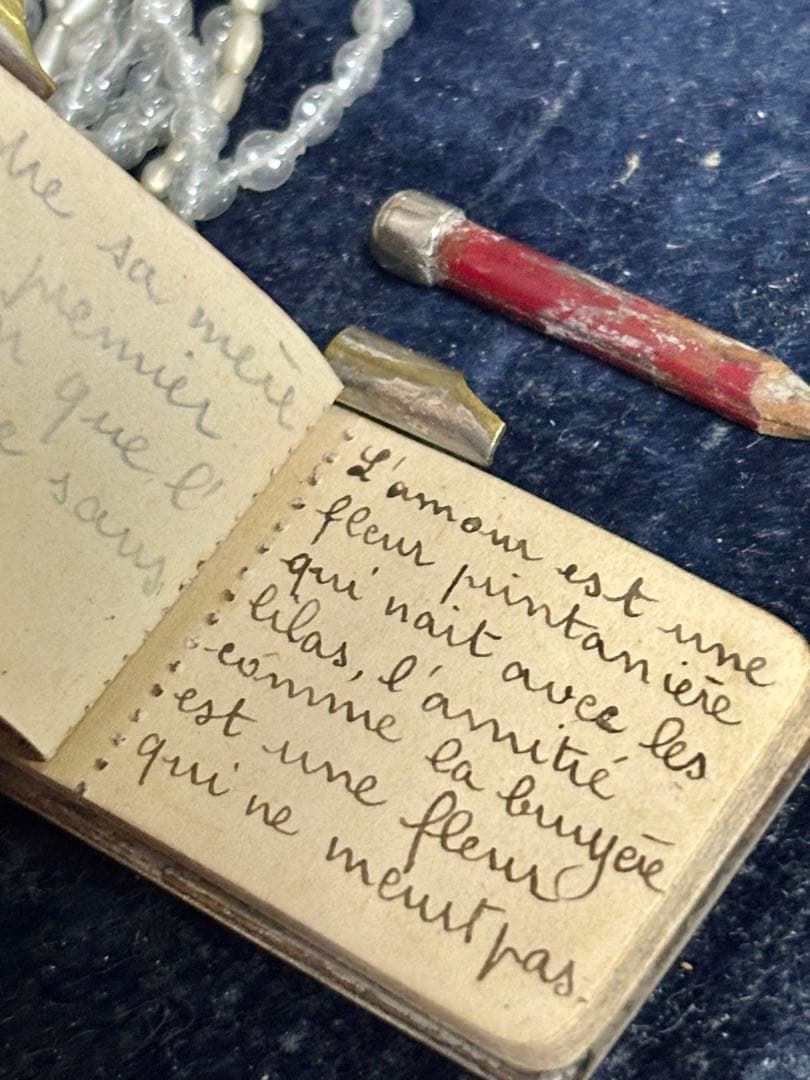 sa mère
premier
que l'
sans
L'amour est une
fleur printanière
qui nait avec les
lilas, l'amitié
comme la bruyère
est une fleur
qui ne meurt pas.